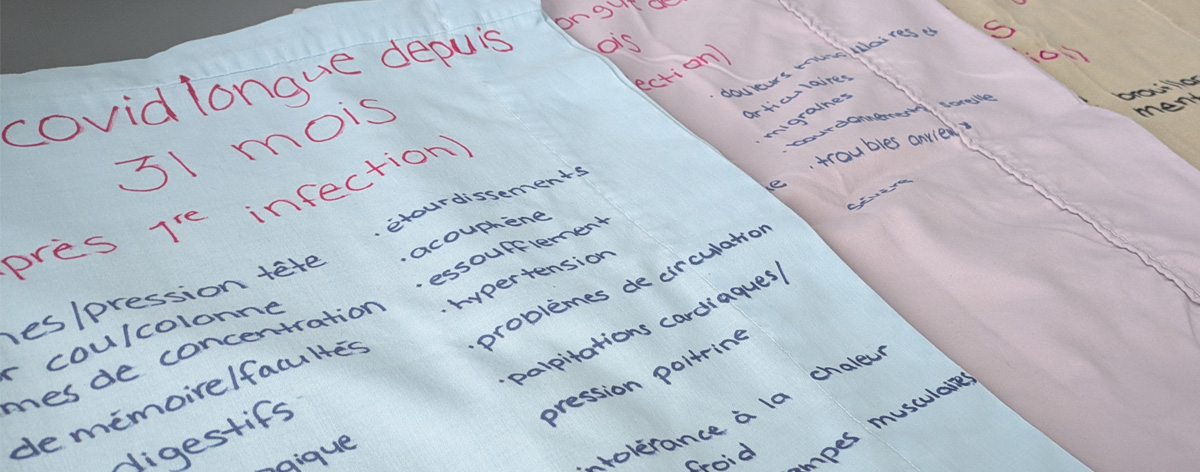 covid longue depuis
31 mois
près 1re infection)
nes/pression tête
r cou/colonne
mes de concentration
de mémoire/facultés
digestifs
gique
· étourdissements
· acouphène
· essoufflement
· hypertension
· problèmes de circulation
· palpitations cardiaques/
pression poitrine
intolérance à la chaleur
froid
mpes musculaires
ois
ection)
· douleurs musculaires et
articulaires
· migraines
· bourdonnement oreille
e
· troubles anxieux
sévère
S
ion)
brouillar
ment